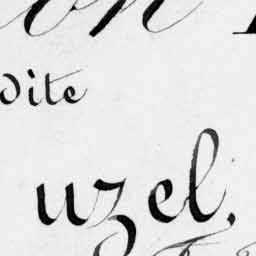 on
dite
uzel,